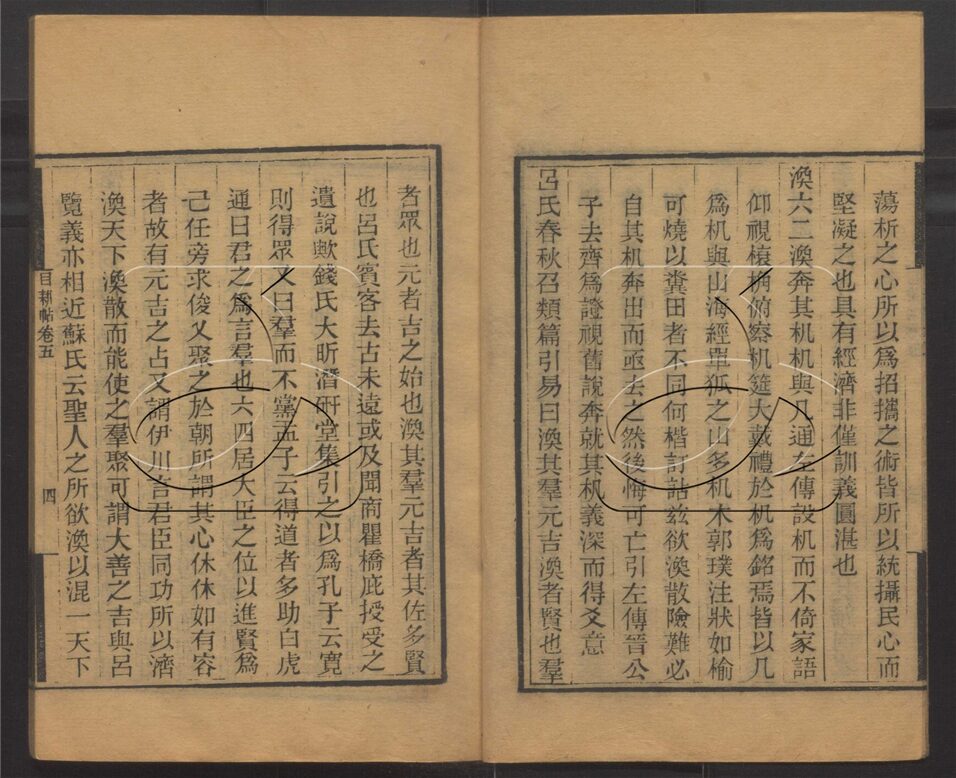 蕩析之心所以爲招攜之術皆所以統攝民心而
堅凝之也具有經濟非僅訓義圓湛也
渙六二渙奔其机机與几通左傳設机而不倚家語
仰視榱桷俯察机筵大戴禮於机爲銘焉皆以几
爲机與山海經單狐之山多机木郭璞注狀如榆
可燒以糞田者不同何楷訂詁茲欲渙散險難必
自其机奔出而亟去之然後悔可亡引左傳晉公
子去齊爲證視舊說奔就其机義深而得爻意
呂氏春秋召類篇引易曰渙其羣元吉渙者賢也羣
者眾也元者吉之始也渙其羣元吉者其佐多賢
也呂氏賓客去古未遠或及聞商瞿橋庇授受之
遺說歟錢氏大昕潛硏堂集引之以爲孔子云寬
則得眾又曰羣而不黨孟子云得道者多助白虎
通曰君之爲言羣也六四居大臣之位以進賢爲
己任旁求俊乂聚之於朝所謂其心休休如有容
者故有元吉之占又謂伊川言君臣同功所以濟
渙天下渙散而能使之羣聚可謂大善之吉與呂
覽義亦相近蘇氏云聖人之所欲渙以混一天下
目耕帖卷五
四